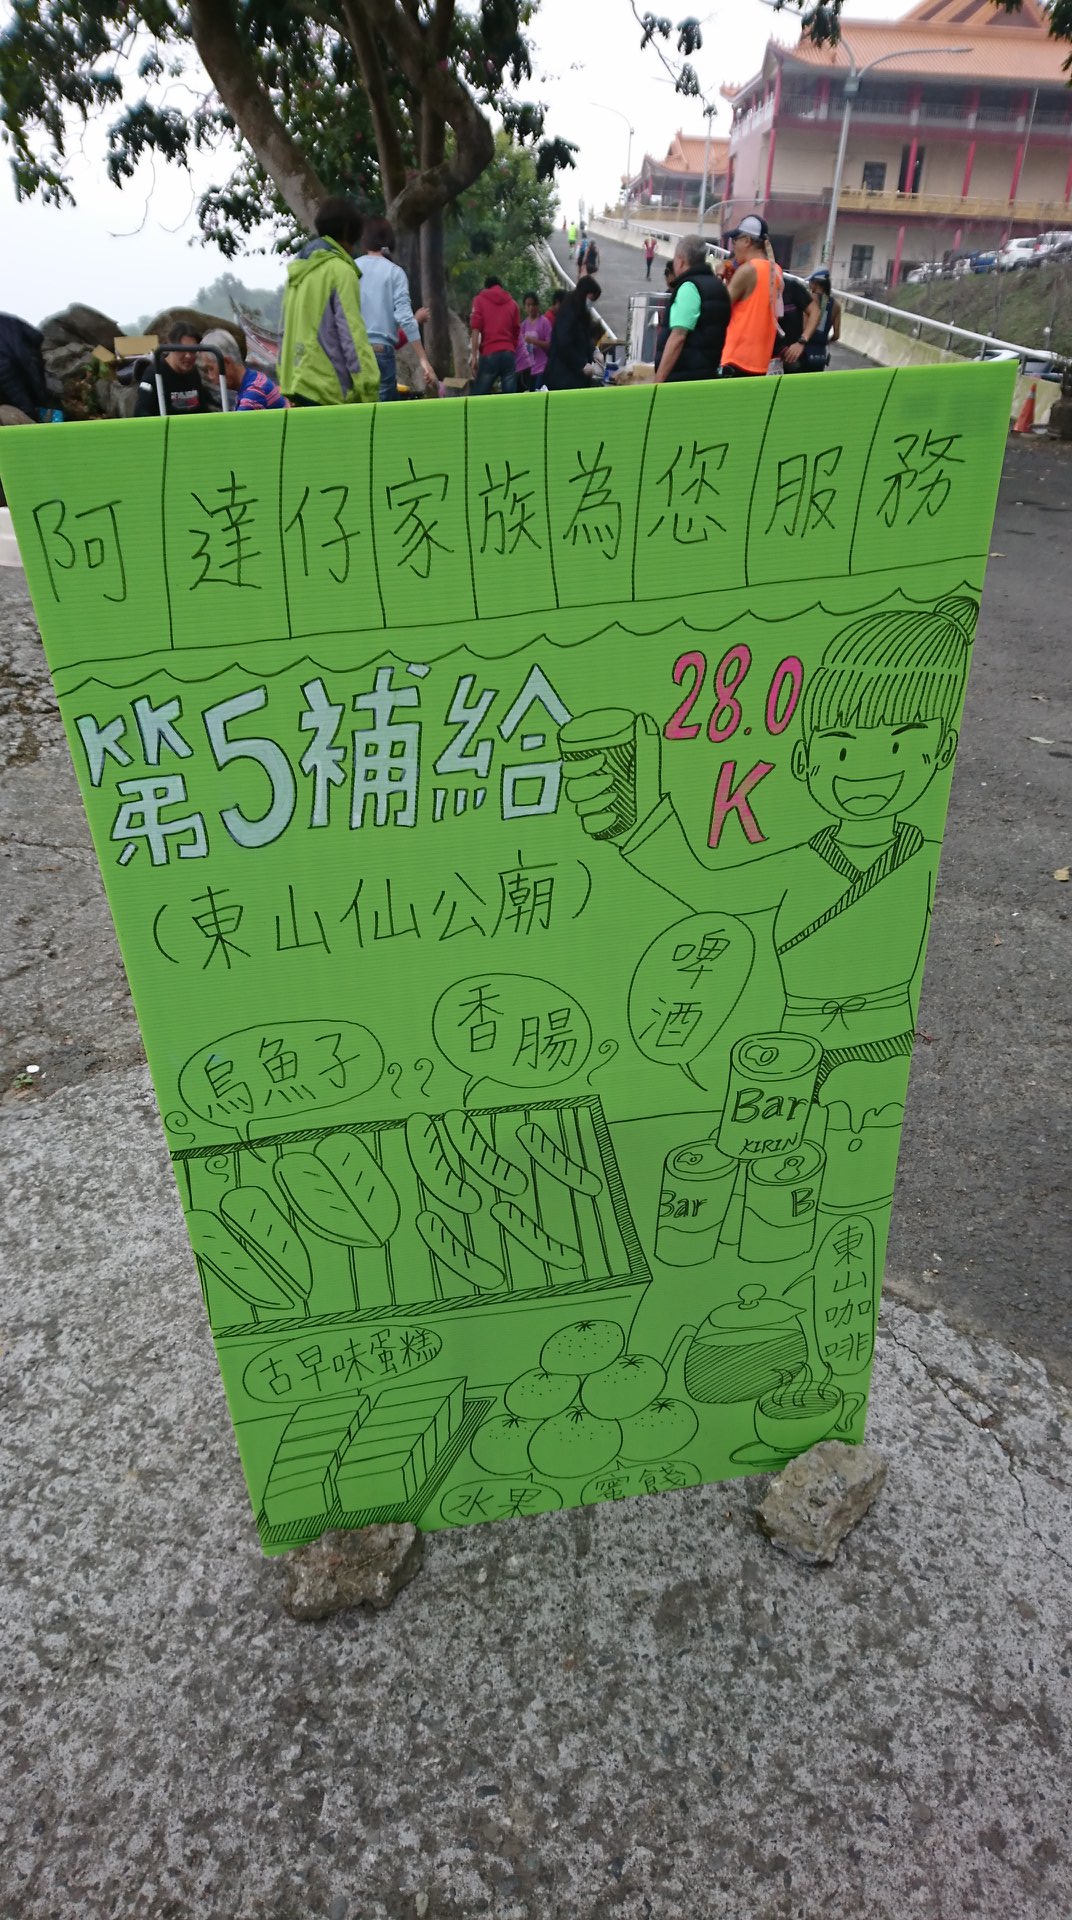 阿達仔家族為您服務
第5補給
28.0
K
(東山仙公廟)
烏魚子
香腸
啤酒
Bar
KIRIN
Bar
B
東山咖啡
古早味蛋糕
水果
蜜餞